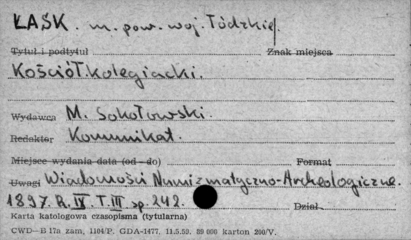 ŁASK. m. pow. woj. Łódzkiej.
Tytuł i podtytuł Znak miejsca
Kościół kolegiacki.
Wydawca M. Sokołowski.
Redaktor Komunikat.
Miejsce wydania data (od - do) Format
Uwagi Wiadomości Numizmatyczno-Archeologiczne.
1897. R. IV. T. III sp. 242. Dział
Karta katologowa czasopisma (tytularna)
CWD—B 17a zam. 1104/P. GDA-1477, 11.5.59. 59 000 karton 200/V.